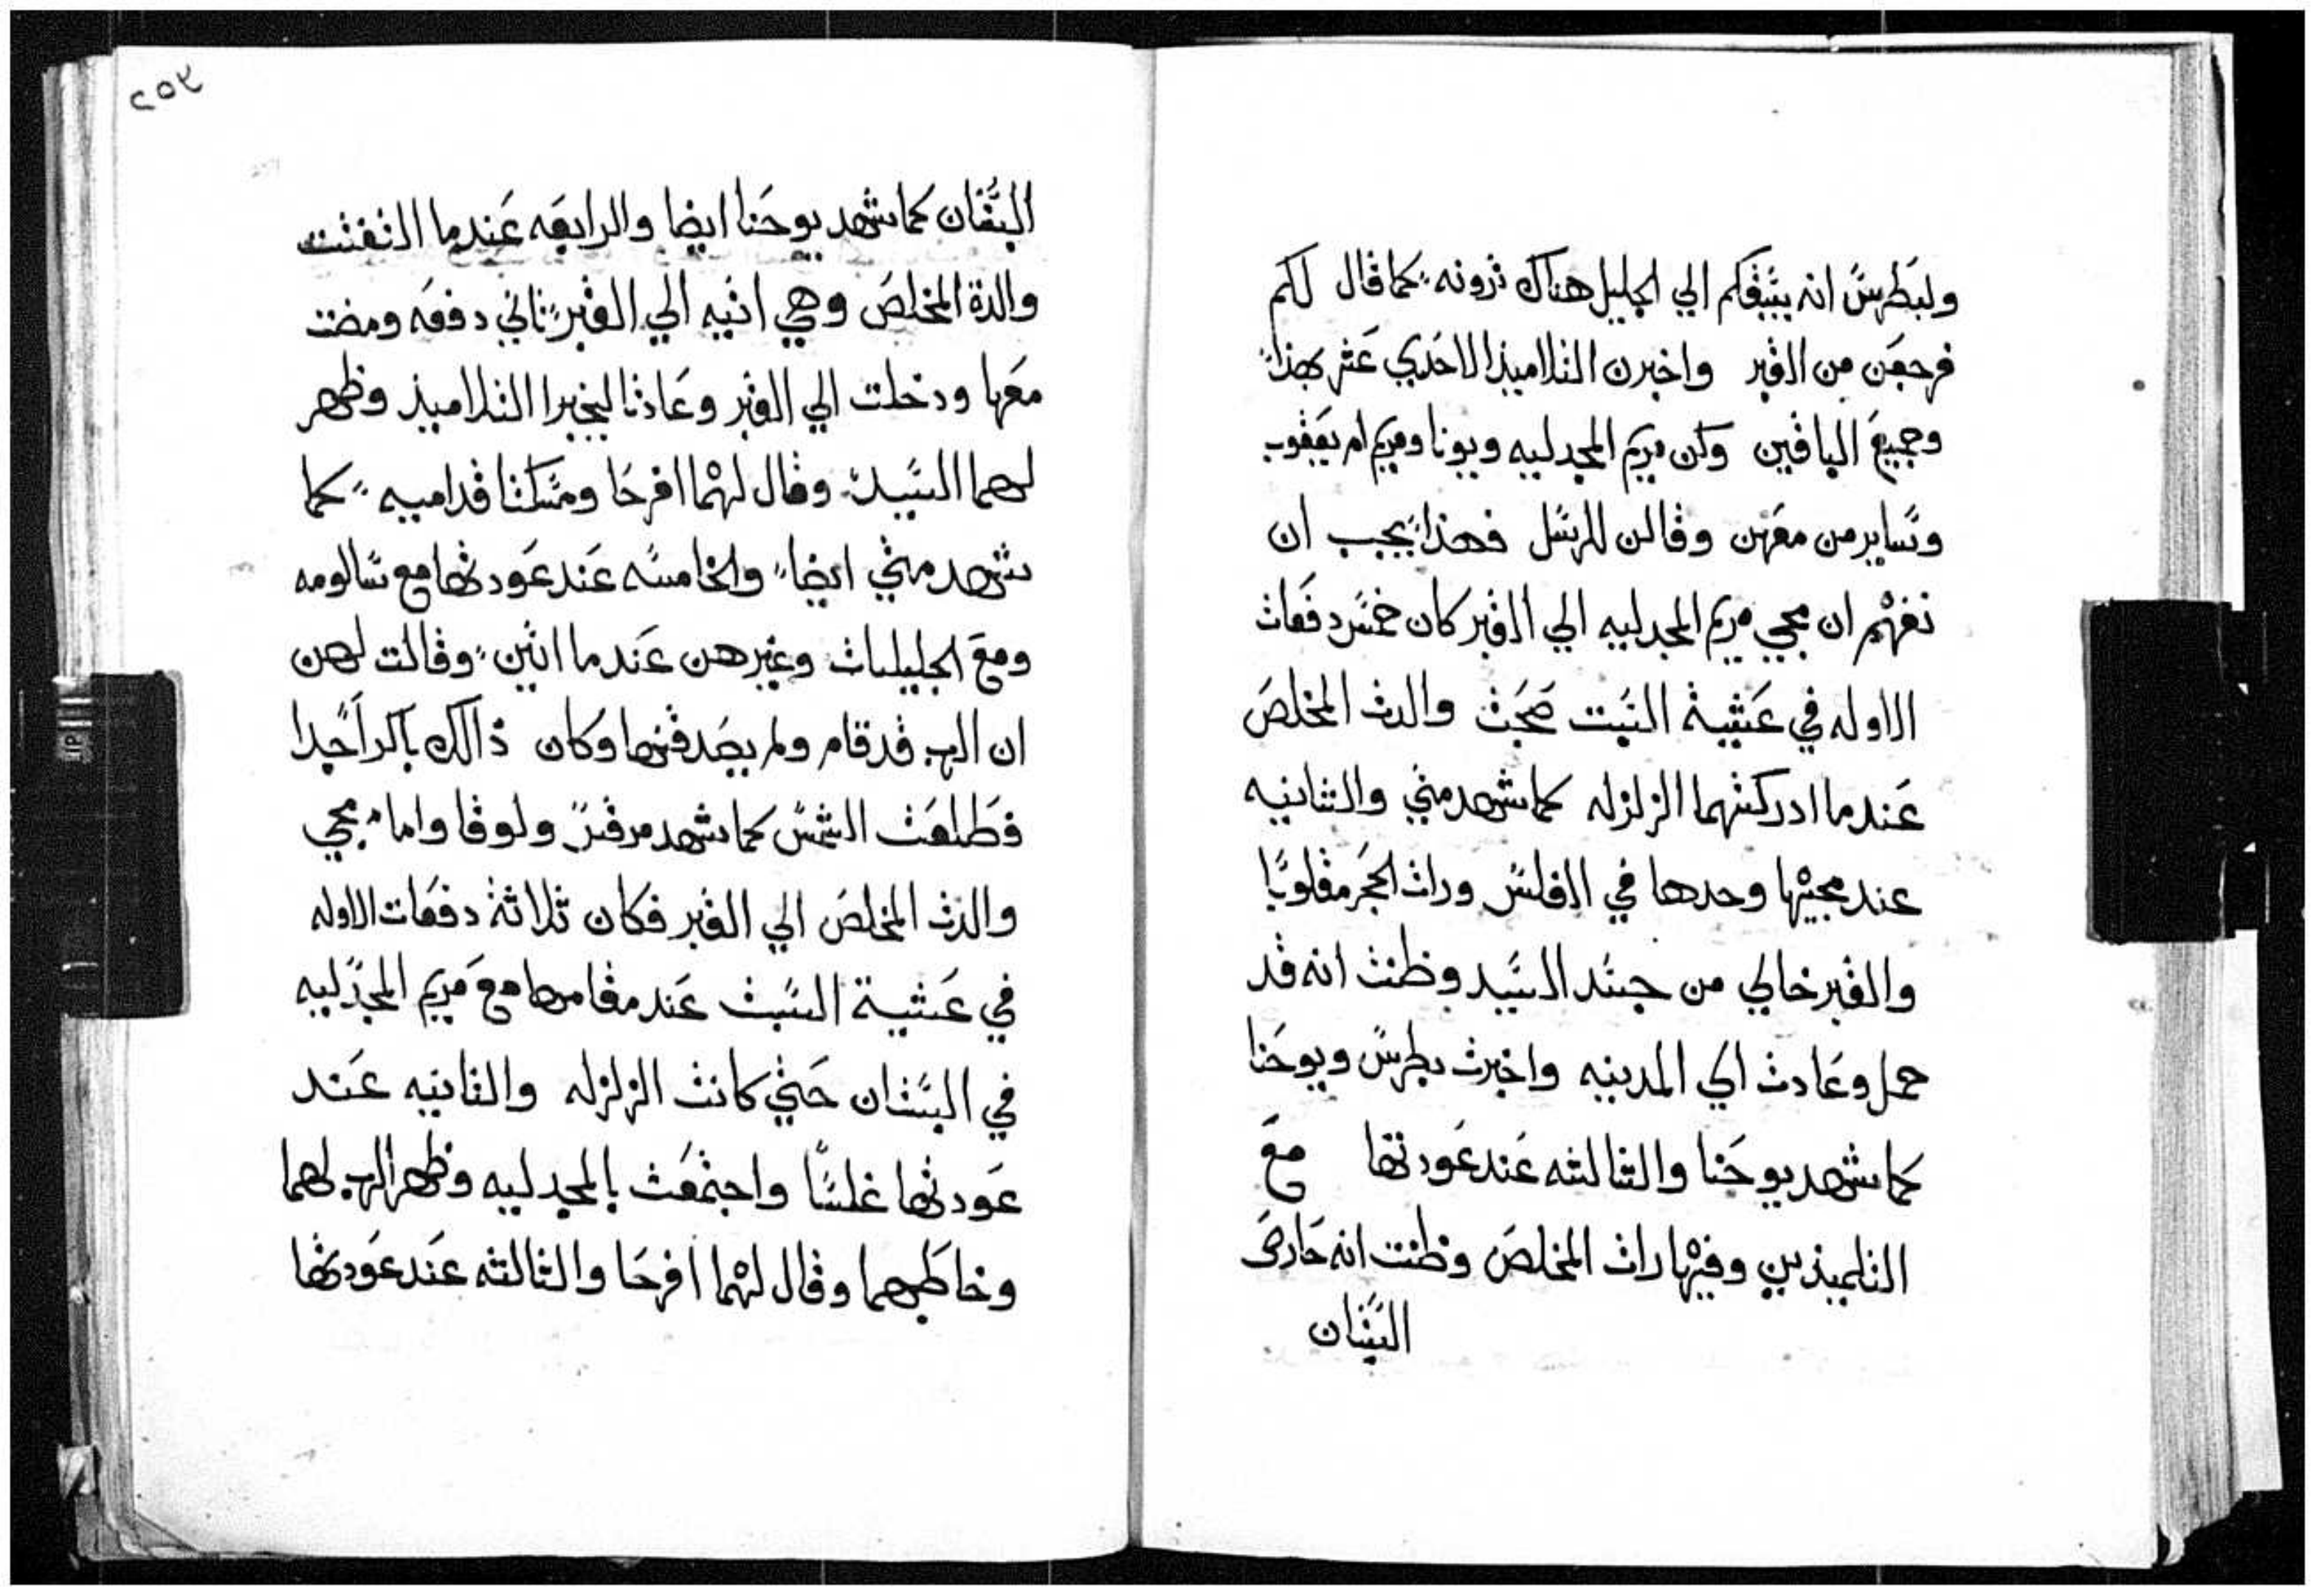 ولبطرس انه يسبقكم الي الجليل هناك ترونه كما قال لكم
فرجعن من القبر واخبرن التلاميذ الاحدي عشر بهذا
وجميع الباقين وكن مريم المجدليه ويونا ومريم ام يعقوب
وساير من معهن وقالن للرسل فهذا يجب ان
نفهم ان مجي مريم المجدليه الي القبر كان خمس دفعات
الاوله في عشية السبت صحبت والدت المخلص
عندما ادركتهما الزلزله كما شهد متي والثانيه
عند مجيها وحدها في الغلس ورات الحجر مقلوبًا
والقبر خالي من جسد السيد وظنت انه قد
حمل وعادت الي المدينه واخبرت بطرس ويوحنا
كما شهد يوحنا والثالثه عند عودتها مع
التلميذين وفيها رات المخلص وظنت انه حارص
البستان
٢٥٢
البستان كما شهد يوحنا ايضا والرابعه عندما التفتت
والدة المخلص وهي اتيه الي القبر ثاني دفعه ومضت
معها ودخلت الي القبر وعادتا ليخبرا التلاميذ وظهر
لهما السيد وقال لهما افرحا ومسكتا قداميه كما
شهد متي ايضا والخامسه عند عودتها مع سالومه
ومع الجليليات وغيرهن عندما اتين وقالت لهن
ان الرب قد قام ولم يصدقنها وكان ذالك باكراً جدا
فطلعت الشمس كما شهد مرقس ولوقا واما مجي
والدت المخلص الي القبر فكان ثلاثة دفعات الاوله
في عشية السبت عند مقامها مع مريم المجدليه
في البستان حتي كانت الزلزله والثانيه عند
عودتها غلسًا واجتمعت بالمجدليه وظهر الرب لهما
وخاطبهما وقال لهما افرحا والثالثه عند عودتها